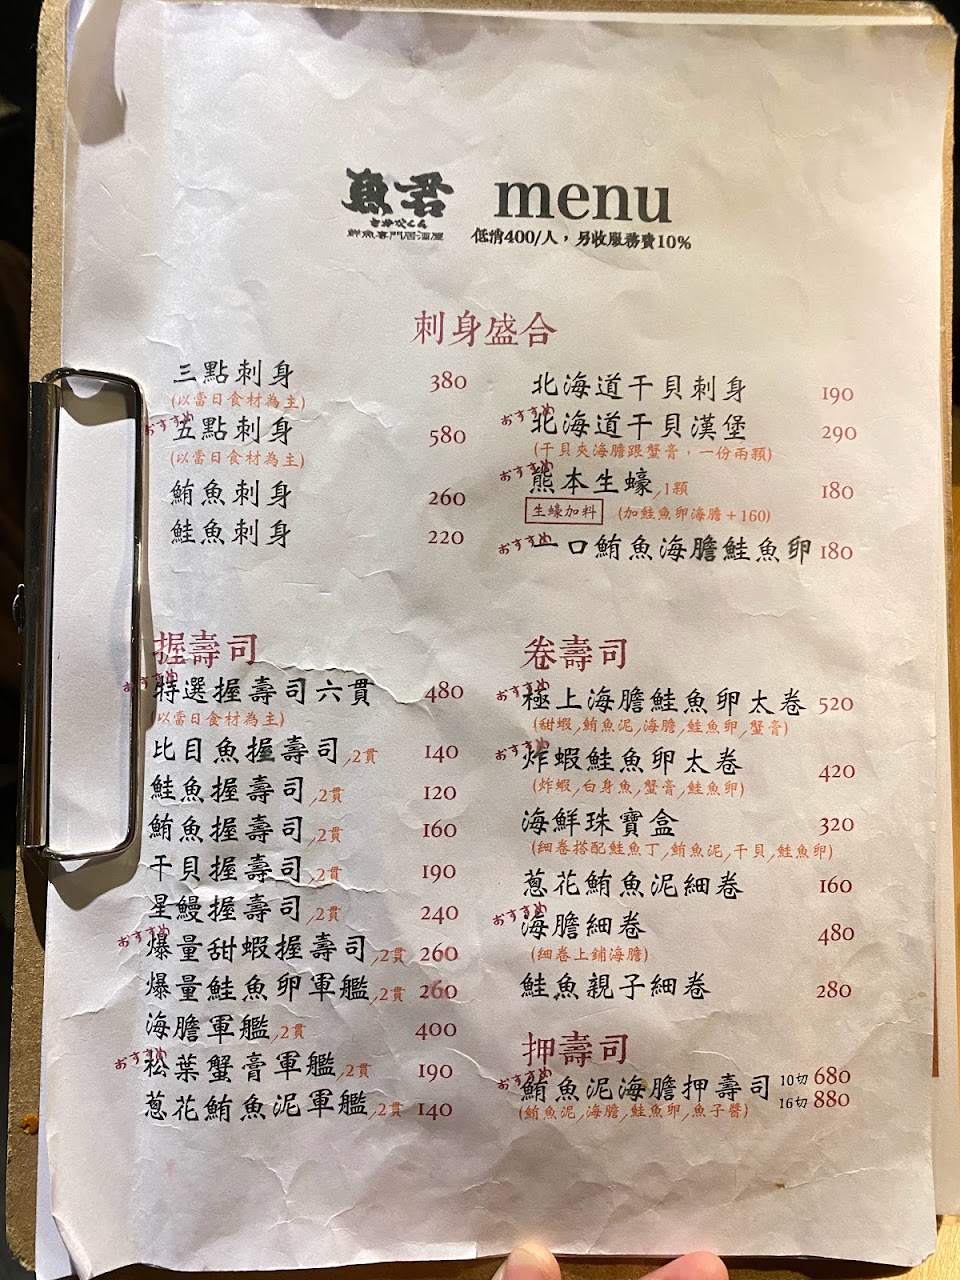 魚君 menu
さかなくん
鮮魚專門居酒屋
低消400/人，另收服務費10%
刺身盛合
三點刺身 380
(以當日食材為主)
おすすめ
五點刺身 580
(以當日食材為主)
鮪魚刺身 260
鮭魚刺身 220
北海道干貝刺身 190
おすすめ
北海道干貝漢堡 290
(干貝夾海膽跟蟹膏，一份兩顆)
おすすめ
熊本生蠔/1顆 180
生蠔加料 (加鮭魚卵海膽+160)
おすすめ
一口鮪魚海膽鮭魚卵 180
握壽司
おすすめ
特選握壽司六貫 480
(以當日食材為主)
比目魚握壽司/2貫 140
鮭魚握壽司/2貫 120
鮪魚握壽司/2貫 160
干貝握壽司/2貫 190
星鰻握壽司/2貫 240
おすすめ
爆量甜蝦握壽司/2貫 260
爆量鮭魚卵軍艦/2貫 260
海膽軍艦/2貫 400
おすすめ
松葉蟹膏軍艦/2貫 190
蔥花鮪魚泥軍艦/2貫 140
卷壽司
おすすめ
極上海膽鮭魚卵太卷 520
(甜蝦/鮪魚泥/海膽/鮭魚卵/蟹膏)
おすすめ
炸蝦鮭魚卵太卷 420
(炸蝦/白身魚/蟹膏/鮭魚卵)
海鮮珠寶盒 320
(細卷搭配鮭魚丁/鮪魚泥/干貝/鮭魚卵)
蔥花鮪魚泥細卷 160
おすすめ
海膽細卷 480
(細卷上鋪海膽)
鮭魚親子細卷 280
押壽司
おすすめ
鮪魚泥海膽押壽司 10切 680
16切 880
(鮪魚泥/海膽/鮭魚卵/魚子醬)